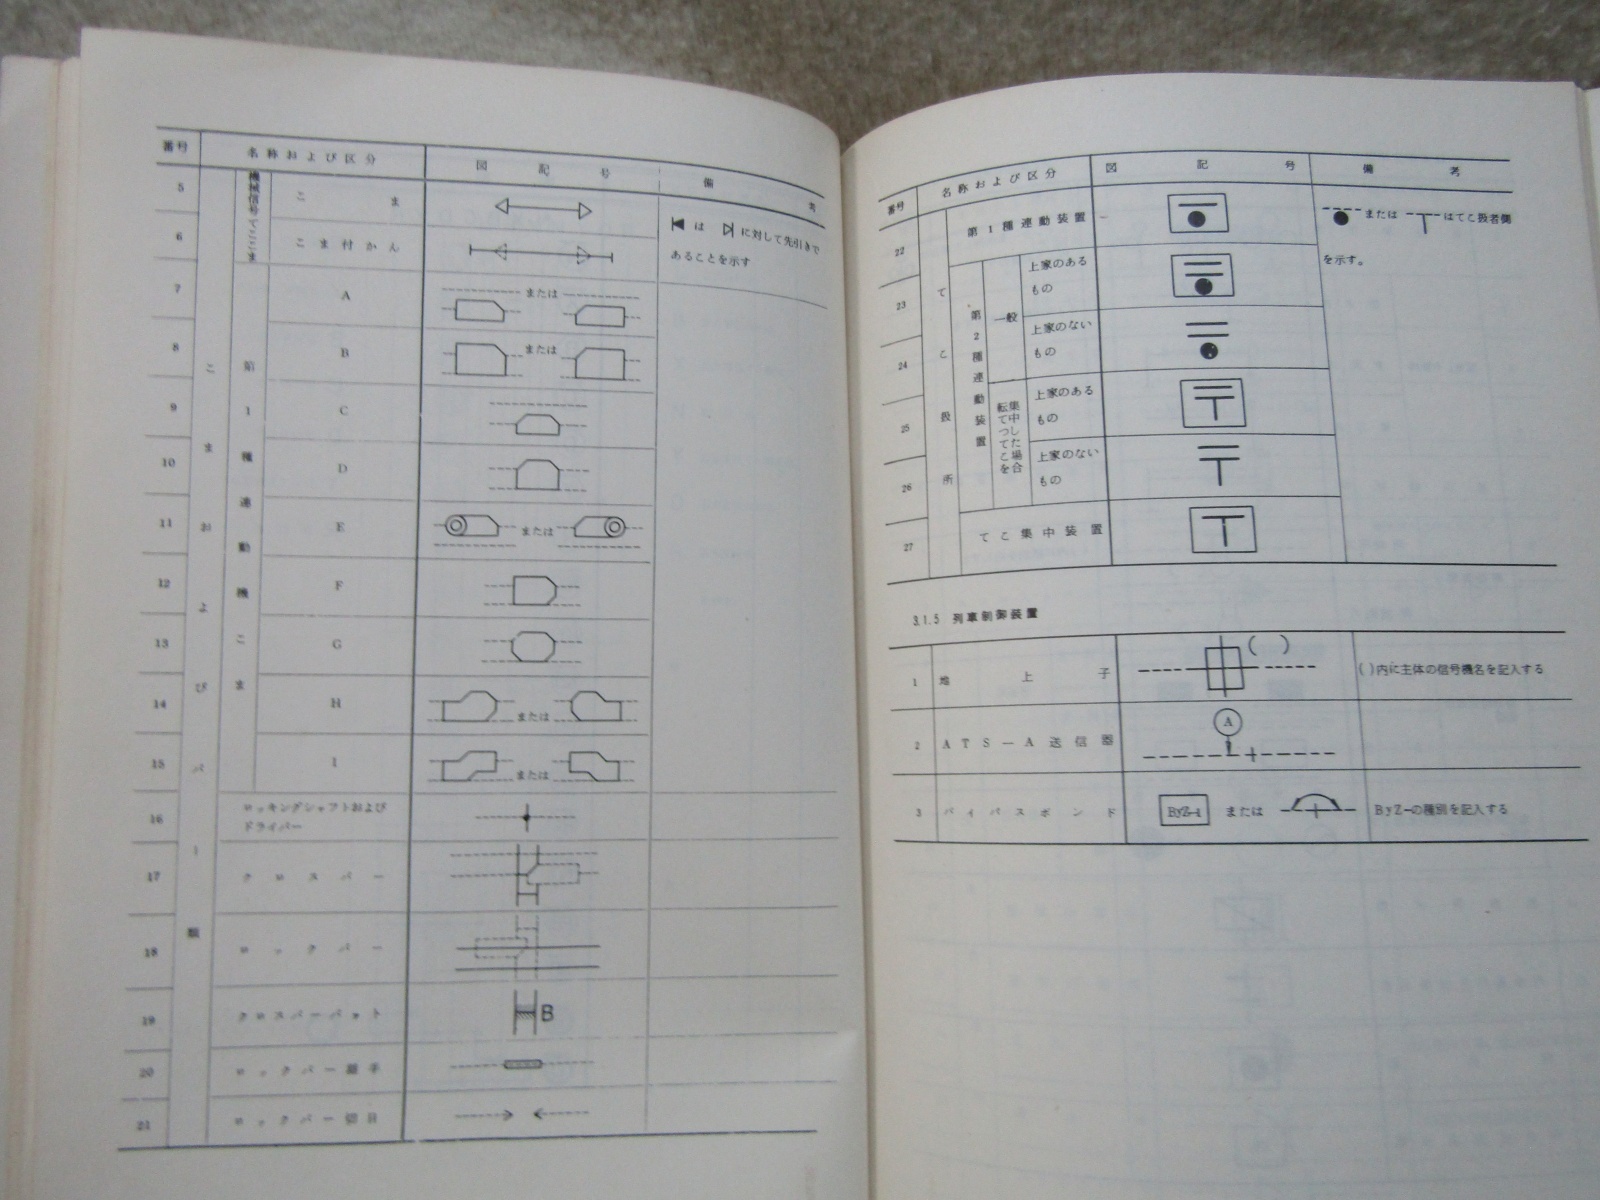 番号 名称および区分 図記号 備考
こまおよびバー類
機械信号てここま
5 こま
◀は▷に対して先引きで
あることを示す
6 こま付かん
第1種連動機こま
7 A または
8 B または
9 C
10 D
11 E または
12 F
13 G
14 H または
15 I または
16 ロッキングシャフトおよび
ドライバー
17 クロスバー
18 ロックバー
19 クロスバーパット B
20 ロックバー継手
21 ロックバー切目
番号 名称および区分 図記号 備考
てこ扱所
22 第1種連動装置
または はてこ扱者側
を示す。
第2種連動装置
一般
23 上家のある
もの
24 上家のない
もの
集中してたこ場合
転てつてこを
25 上家のある
もの
26 上家のない
もの
27 てこ集中装置
3.1.5 列車制御装置
1 地上子 ( ) ( )内に主体の信号機名を記入する
2 ATS-A送信器 A
3 バイパスボンド ByZ-1 または ByZ-の種別を記入する